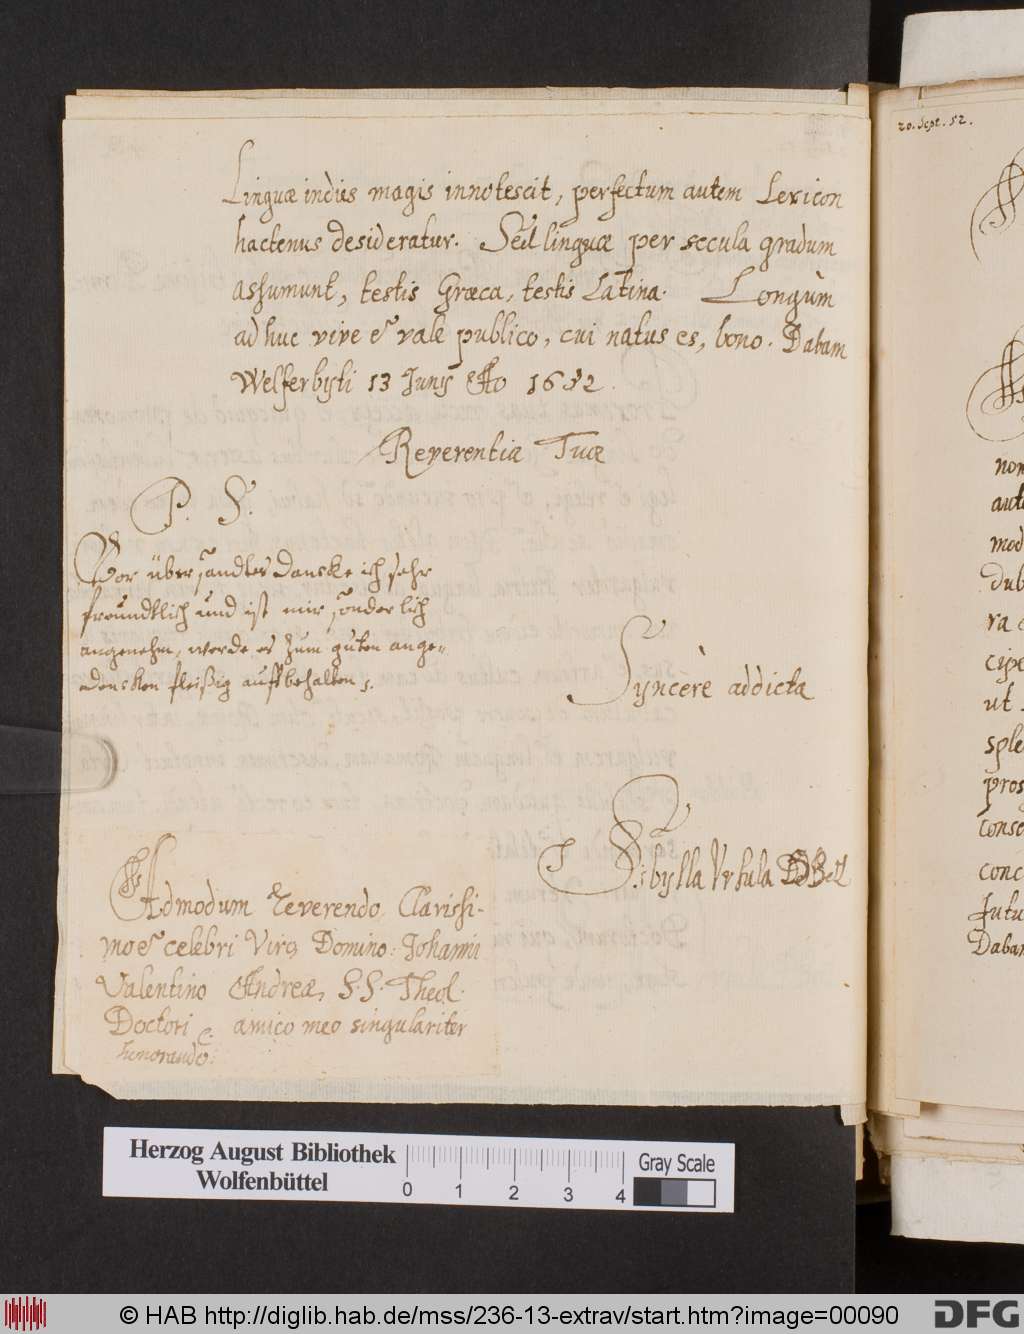 Linguæ indies magis innotescit, perfectum autem Lexicon
hactenus desideratur. Sed linguæ per secula gradum
assumunt, testis Græca, testis Latina. Longùm
ad huc vive et vale publico, cui natus es, bono. Dabam
Welferbyti 13 Junÿ Ao 1652.
Reverentiæ Tuæ
P. S.
Vor übersandtes dancke ich sehr
freundtlich und ist mir sonderlich
angenehm, werde es zum guten ange-
dencken fleißig auffbehalten
Syncerè addicta
Sibylla Ursula
Admodum Reverendo Clarissi-
mo et celebri Viro Domino: Johanni
Valentino Andreæ, S.S. Theol.
Doctori amico meo singulariter
honorando:
20. Sept. 52.
Dabam
Herzog August Bibliothek
Wolfenbüttel
0 1 2 3 4
Gray Scale
© HAB http://diglib.hab.de/mss/236-13-extrav/start.htm?image=00090
DFG